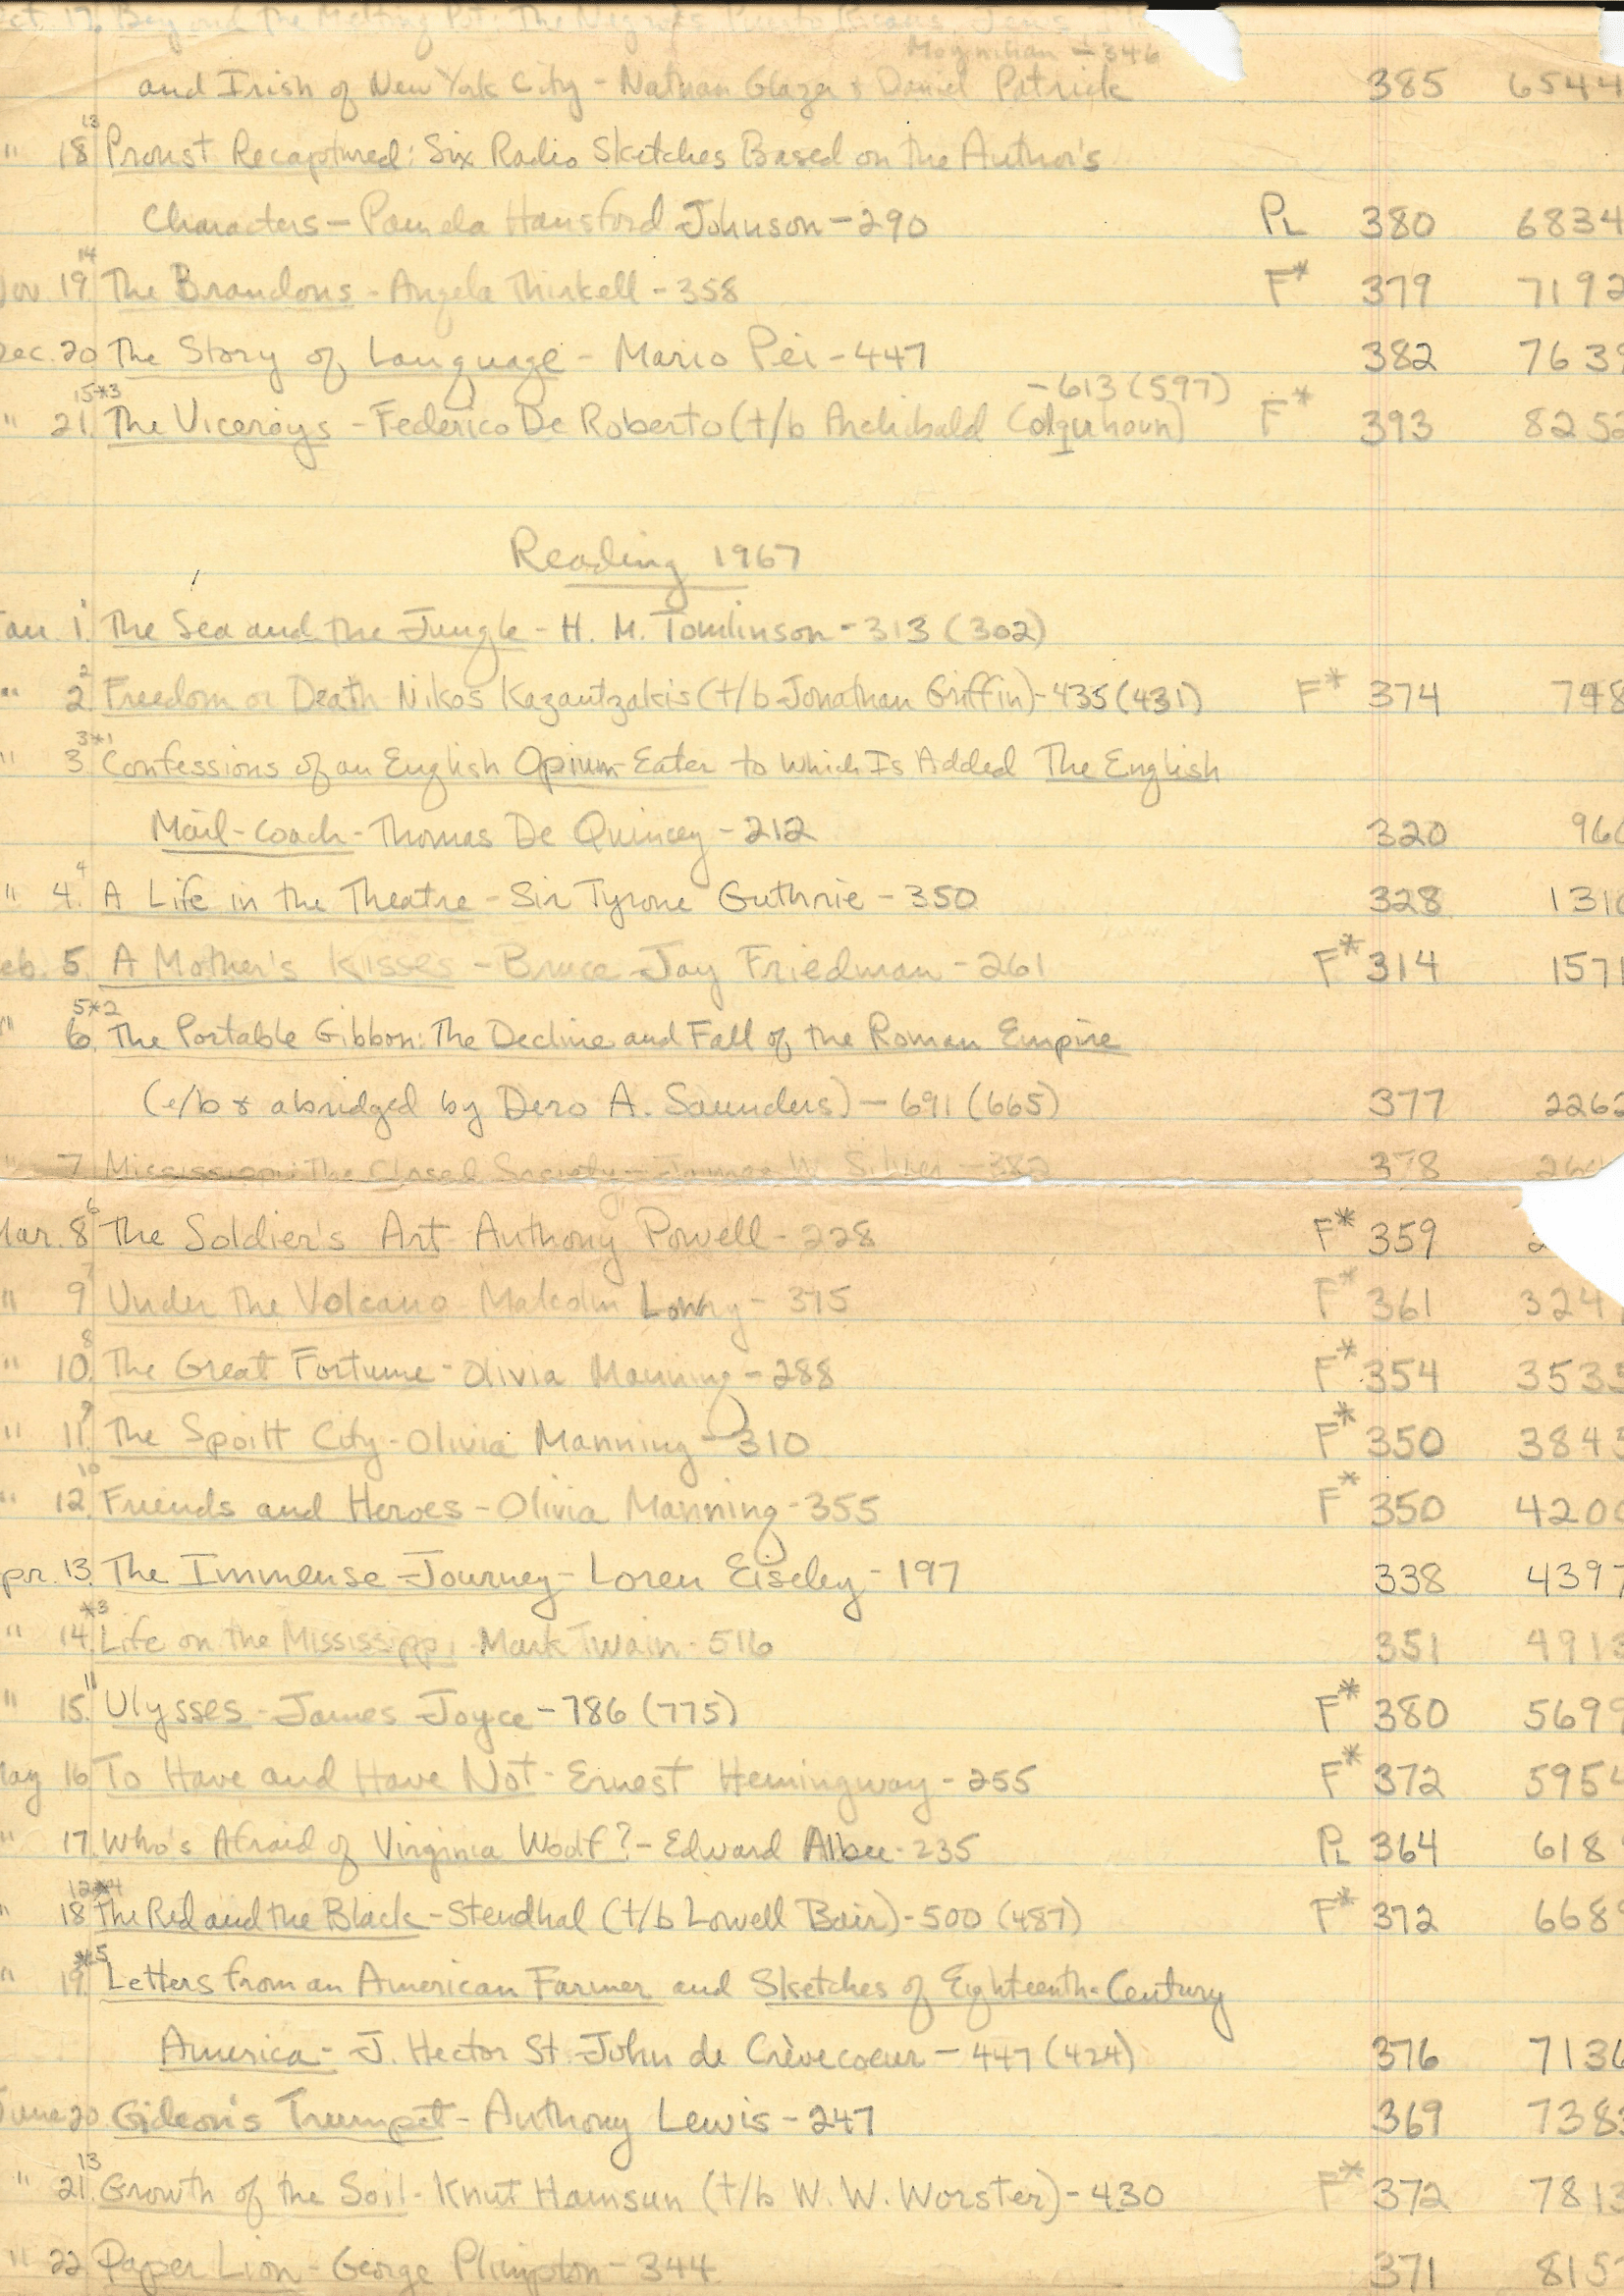 ct. 17. Beyond the Melting Pot: The Negroes, Puerto Ricans, Jews,
Moynihan - 346
and Irish of New York City - Nathan Glazer & Daniel Patrick 385 6544
13
" 18 Proust Recaptured: Six Radio Sketches Based on the Author's
Characters - Pamela Hansford Johnson - 290 PL 380 6834
14
Nov 19 The Brandons - Angela Thirkell - 358 F* 379 7192
Dec. 20 The Story of Language - Mario Pei - 447 382 7639
15*3 - 613 (597)
" 21. The Viceroys - Federico De Roberto (t/b Archibald Colquhoun) F* 393 8252
Reading 1967
1
Jan. 1. The Sea and the Jungle - H. M. Tomlinson - 313 (302)
2
" 2 Freedom or Death Nikos Kazantzakis (t/b Jonathan Griffin) - 435 (431) F* 374 748
3*1
" 3 Confessions of an English Opium-Eater to Which Is Added The English
Mail-Coach - Thomas De Quincey - 212 320 960
4
" 4. A Life in the Theatre - Sir Tyrone Guthrie - 350 328 1310
eb. 5. A Mother's Kisses - Bruce Jay Friedman - 261 F* 314 1571
5*2
" 6. The Portable Gibbon: The Decline and Fall of the Roman Empire
(e/b & abridged by Dero A. Saunders) - 691 (665) 377 2262
" 7 Mississippi: The Closed Society - James W. Silver - 382 378 26
6
Mar. 8 The Soldier's Art - Anthony Powell - 228 F* 359 2
7
" 9 Under the Volcano - Malcolm Lowry - 375 F* 361 324
8
" 10. The Great Fortune - Olivia Manning - 288 F* 354 3535
9
" 11. The Spoilt City - Olivia Manning - 310 F* 350 3845
10
" 12. Friends and Heroes - Olivia Manning - 355 F* 350 4200
pr. 13. The Immense Journey - Loren Eiseley - 197 338 4397
*3
" 14. Life on the Mississippi - Mark Twain - 516 351 4913
11
" 15. Ulysses - James Joyce - 786 (775) F* 380 5699
May 16 To Have and Have Not - Ernest Hemingway - 255 F* 372 5954
" 17. Who's Afraid of Virginia Woolf? - Edward Albee - 235 PL 364 618
12*4
" 18 The Red and the Black - Stendhal (t/b Lowell Bair) - 500 (487) F* 372 668
*5
" 19. Letters from an American Farmer and Sketches of Eighteenth-Century
America - J. Hector St. John de Crèvecoeur - 447 (424) 376 7136
June 20. Gideon's Trumpet - Anthony Lewis - 247 369 7383
13
" 21. Growth of the Soil - Knut Hamsun (t/b W. W. Worster) - 430 F* 372 7813
" 22 Paper Lion - George Plimpton - 344 371 815